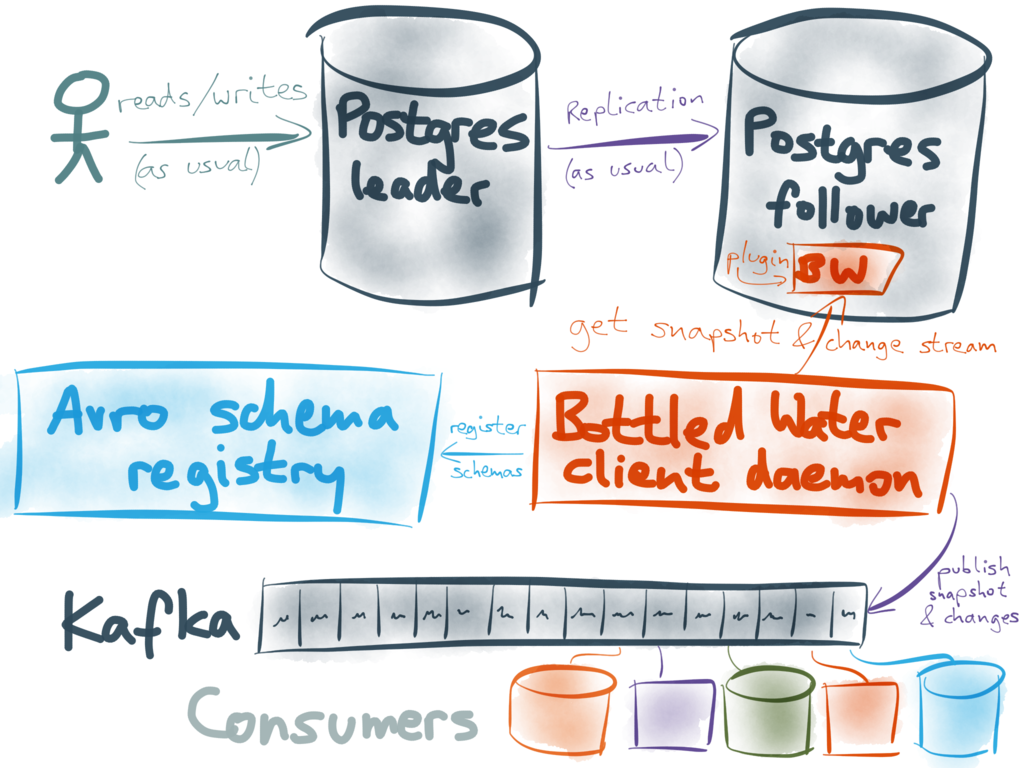 reads/writes
(as usual)
Postgres
leader
Replication
(as usual)
Postgres
follower
plugin
BW
get snapshot & change stream
Avro schema
registry
register
schemas
Bottled Water
client daemon
publish
snapshot
& changes
Kafka
Consumers